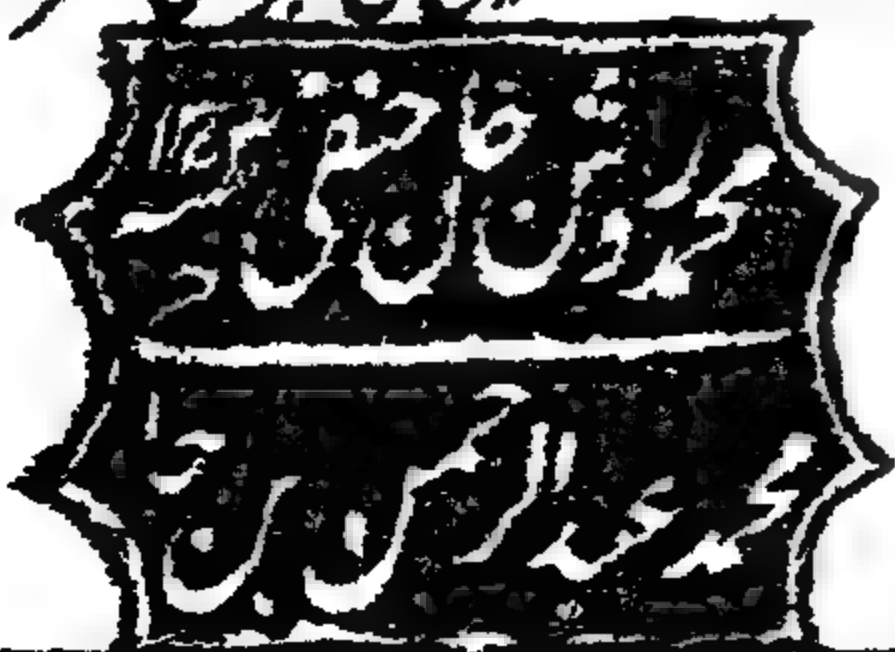 محمد روشن خان حنفی
محمد عبدالرحمن بن